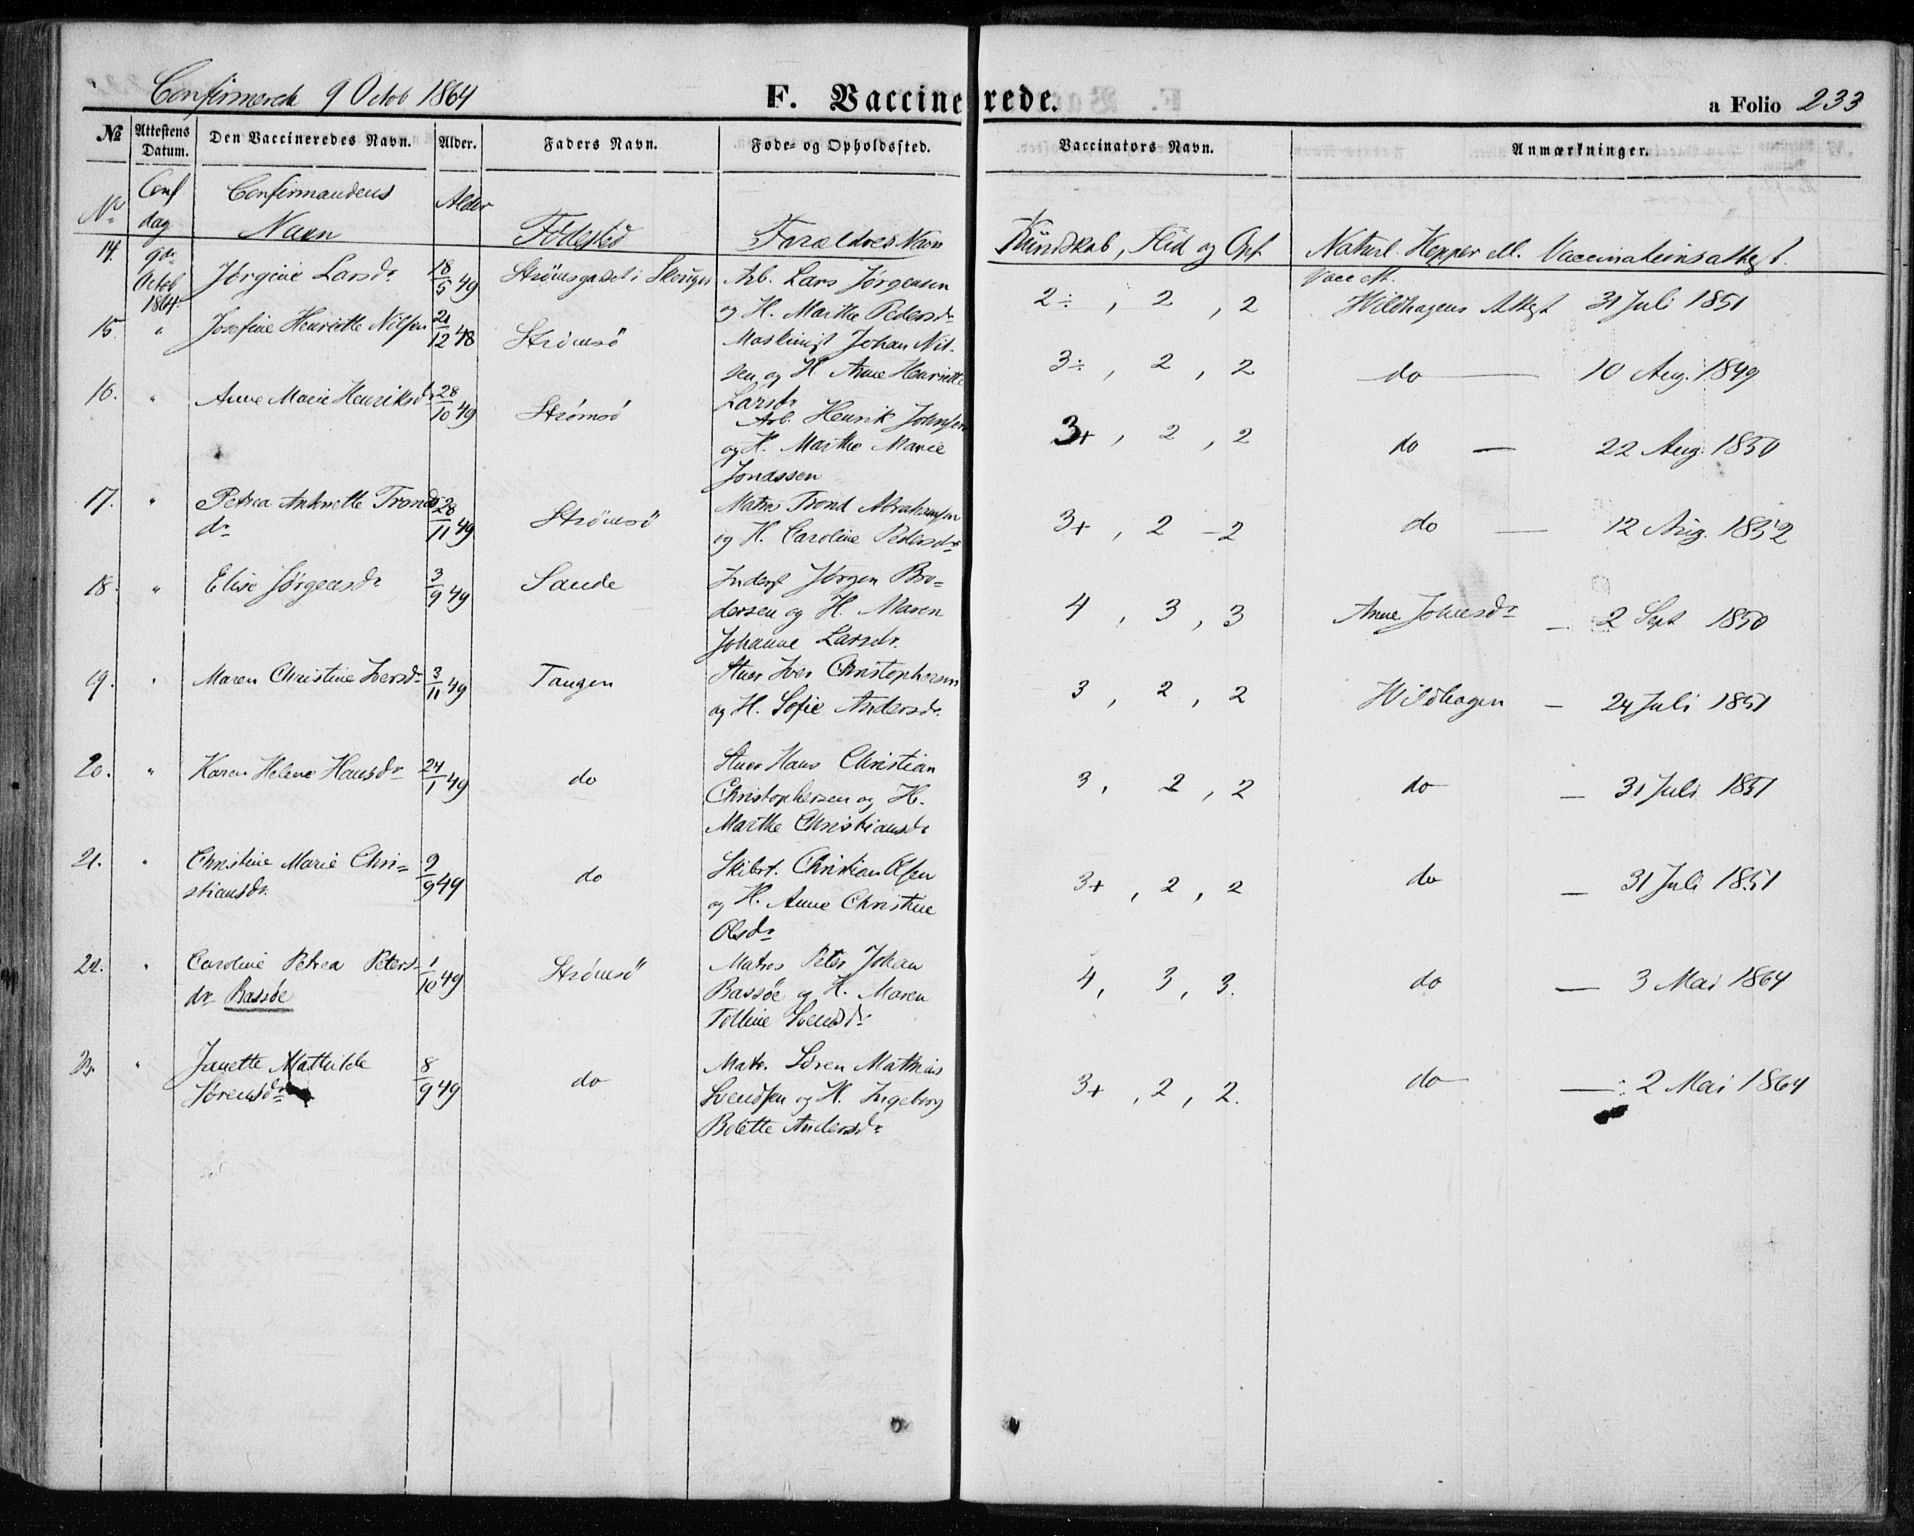 Confirmerede 9 Octob 1864
F. Vaccinerede.
a Folio 233
№ Attestens Datum. Den Vaccineredes Navn. Alder. Faders Navn. Føde- og Opholdssted. Vaccinators Navn. Anmærkninger.
No Conf dag Confirmandens Navn Alder Fødested Forældres Navn Kundskab, Flid og Opf. Naturl. Kopper ell. Vaccinationsattest.
14. 9de Octob 1864. Jørgine Larsdr 18/5 49 Strømsgodset i Skouger Arb. Lars Jørgensen 2÷, 2, 2 Vacc att. Wildhagens Attest 31 Juli 1851
og H. Marthe Pedersdr
15. " Josefine Henriette Nilsen 21/12 48 Strømsö Johan Nil-
sen og H. Anne Henriette 3÷, 2, 2 do 10 Aug. 1849
Larsdr
16. " Anne Marie Henriksdr 28/10 49 Strømsö Arb. Henrik Johnsen
og H. Marthe Marie 3+, 2, 2 do — 22 Aug. 1850
Jonassen
17. " Petrea Antonette Tronds- 28/11 49 Strømsö Matro Trond Abrahamsen
dr og H. Caroline Pedersdr 3+, 2 - 2 do — 12 Aug. 1852
18. " Elise Jørgensdr 3/9 49 Sande Inderst Jørgen Bro-
dersen og H. Maren 4, 3, 3 Anne Johnsdr — 2 Sept 1850
Johanne Larsdr.
19. " Maren Christine Iversdr 3/11 49 Tangen Stuer Iver Christophersen
og H. Sofie Andersdr. 3, 2, 2 Wildhagen — 24 Juli 1851
20. " Karen Helene Hansdr 24/1 49 do Stuer Hans Christian
Christophersen og H. 3, 2, 2 do — 31 Juli 1851
Marthe Christiansdr
21. " Christine Marie Chri- 9/9 49 do Skibst. Christian Olsen
stiansdr. og H. Anne Christine 3+, 2, 2 do — 31 Juli 1851
Olsdr
22. " Caroline Petrea Peters- 1/10 49 Strømsö Matros Peter Johan
dr Bassøe Bassøe og H. Maren 4, 3, 3. do — 3 Mai 1864
Tolline Svendsdr
23. " Janette Mathilde 8/9 49 do Matr. Søren Mathias
Sørensdr Svendsen og H. Ingeborg 3+, 2, 2. do — 2 Mai 1864
Bolette Andersdr